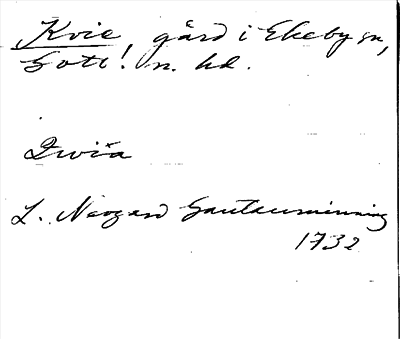 Kvie, gård i Ekeby sn,
Gotl. n. hd.
Qviä
L. Neogard Gautauminning
1732